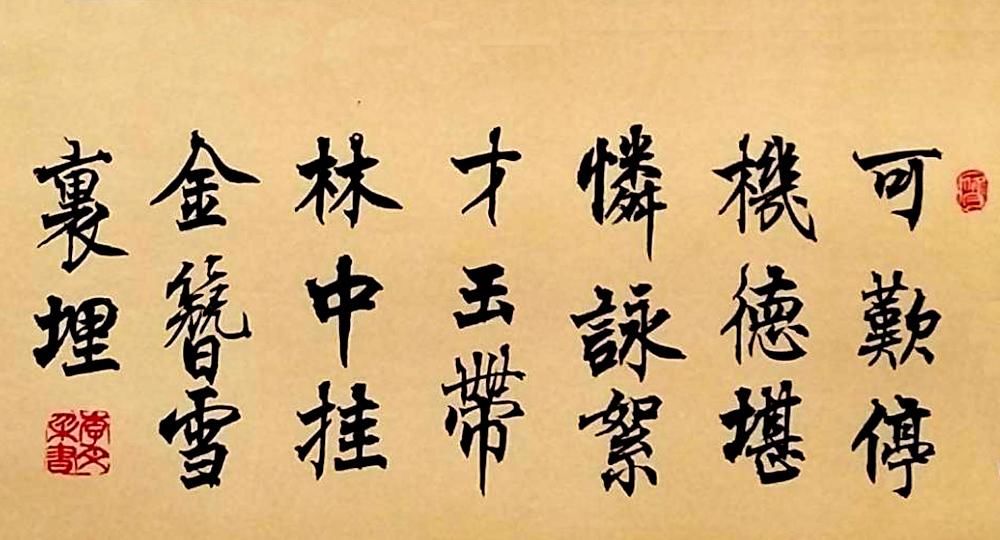 可歎停
機德堪
憐詠絮
才玉帶
林中挂
金簪雪
裏埋